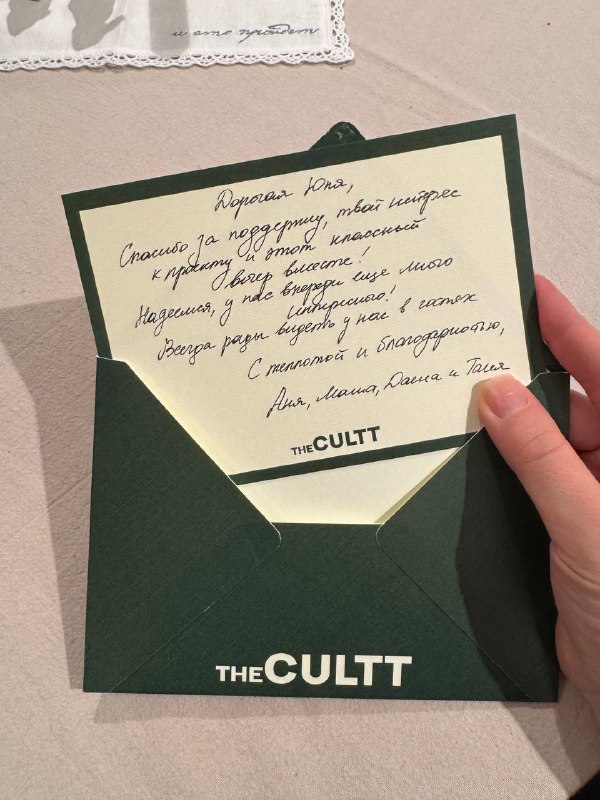 и это пройдет
Дорогая Юля,
Спасибо за поддержку, твой интерес
к проекту и этот классный
вечер вместе!
Надеемся, у нас впереди еще много
интересного!
Всегда рады видеть у нас в гостях
С теплотой и благодарностью,
Аня, Маша, Даша и Таня
THE CULTT
THE CULTT